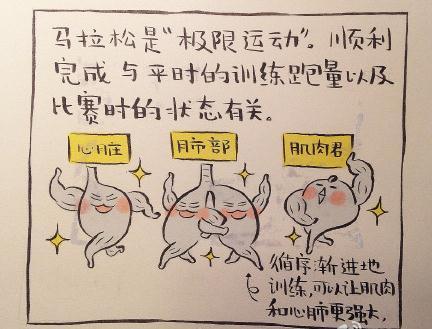 马拉松是“极限运动”。顺利
完成与平时的训练跑量以及
比赛时的状态有关。
心脏
肺部
肌肉君
循序渐进地
训练,可以让肌肉
和心肺更强大,